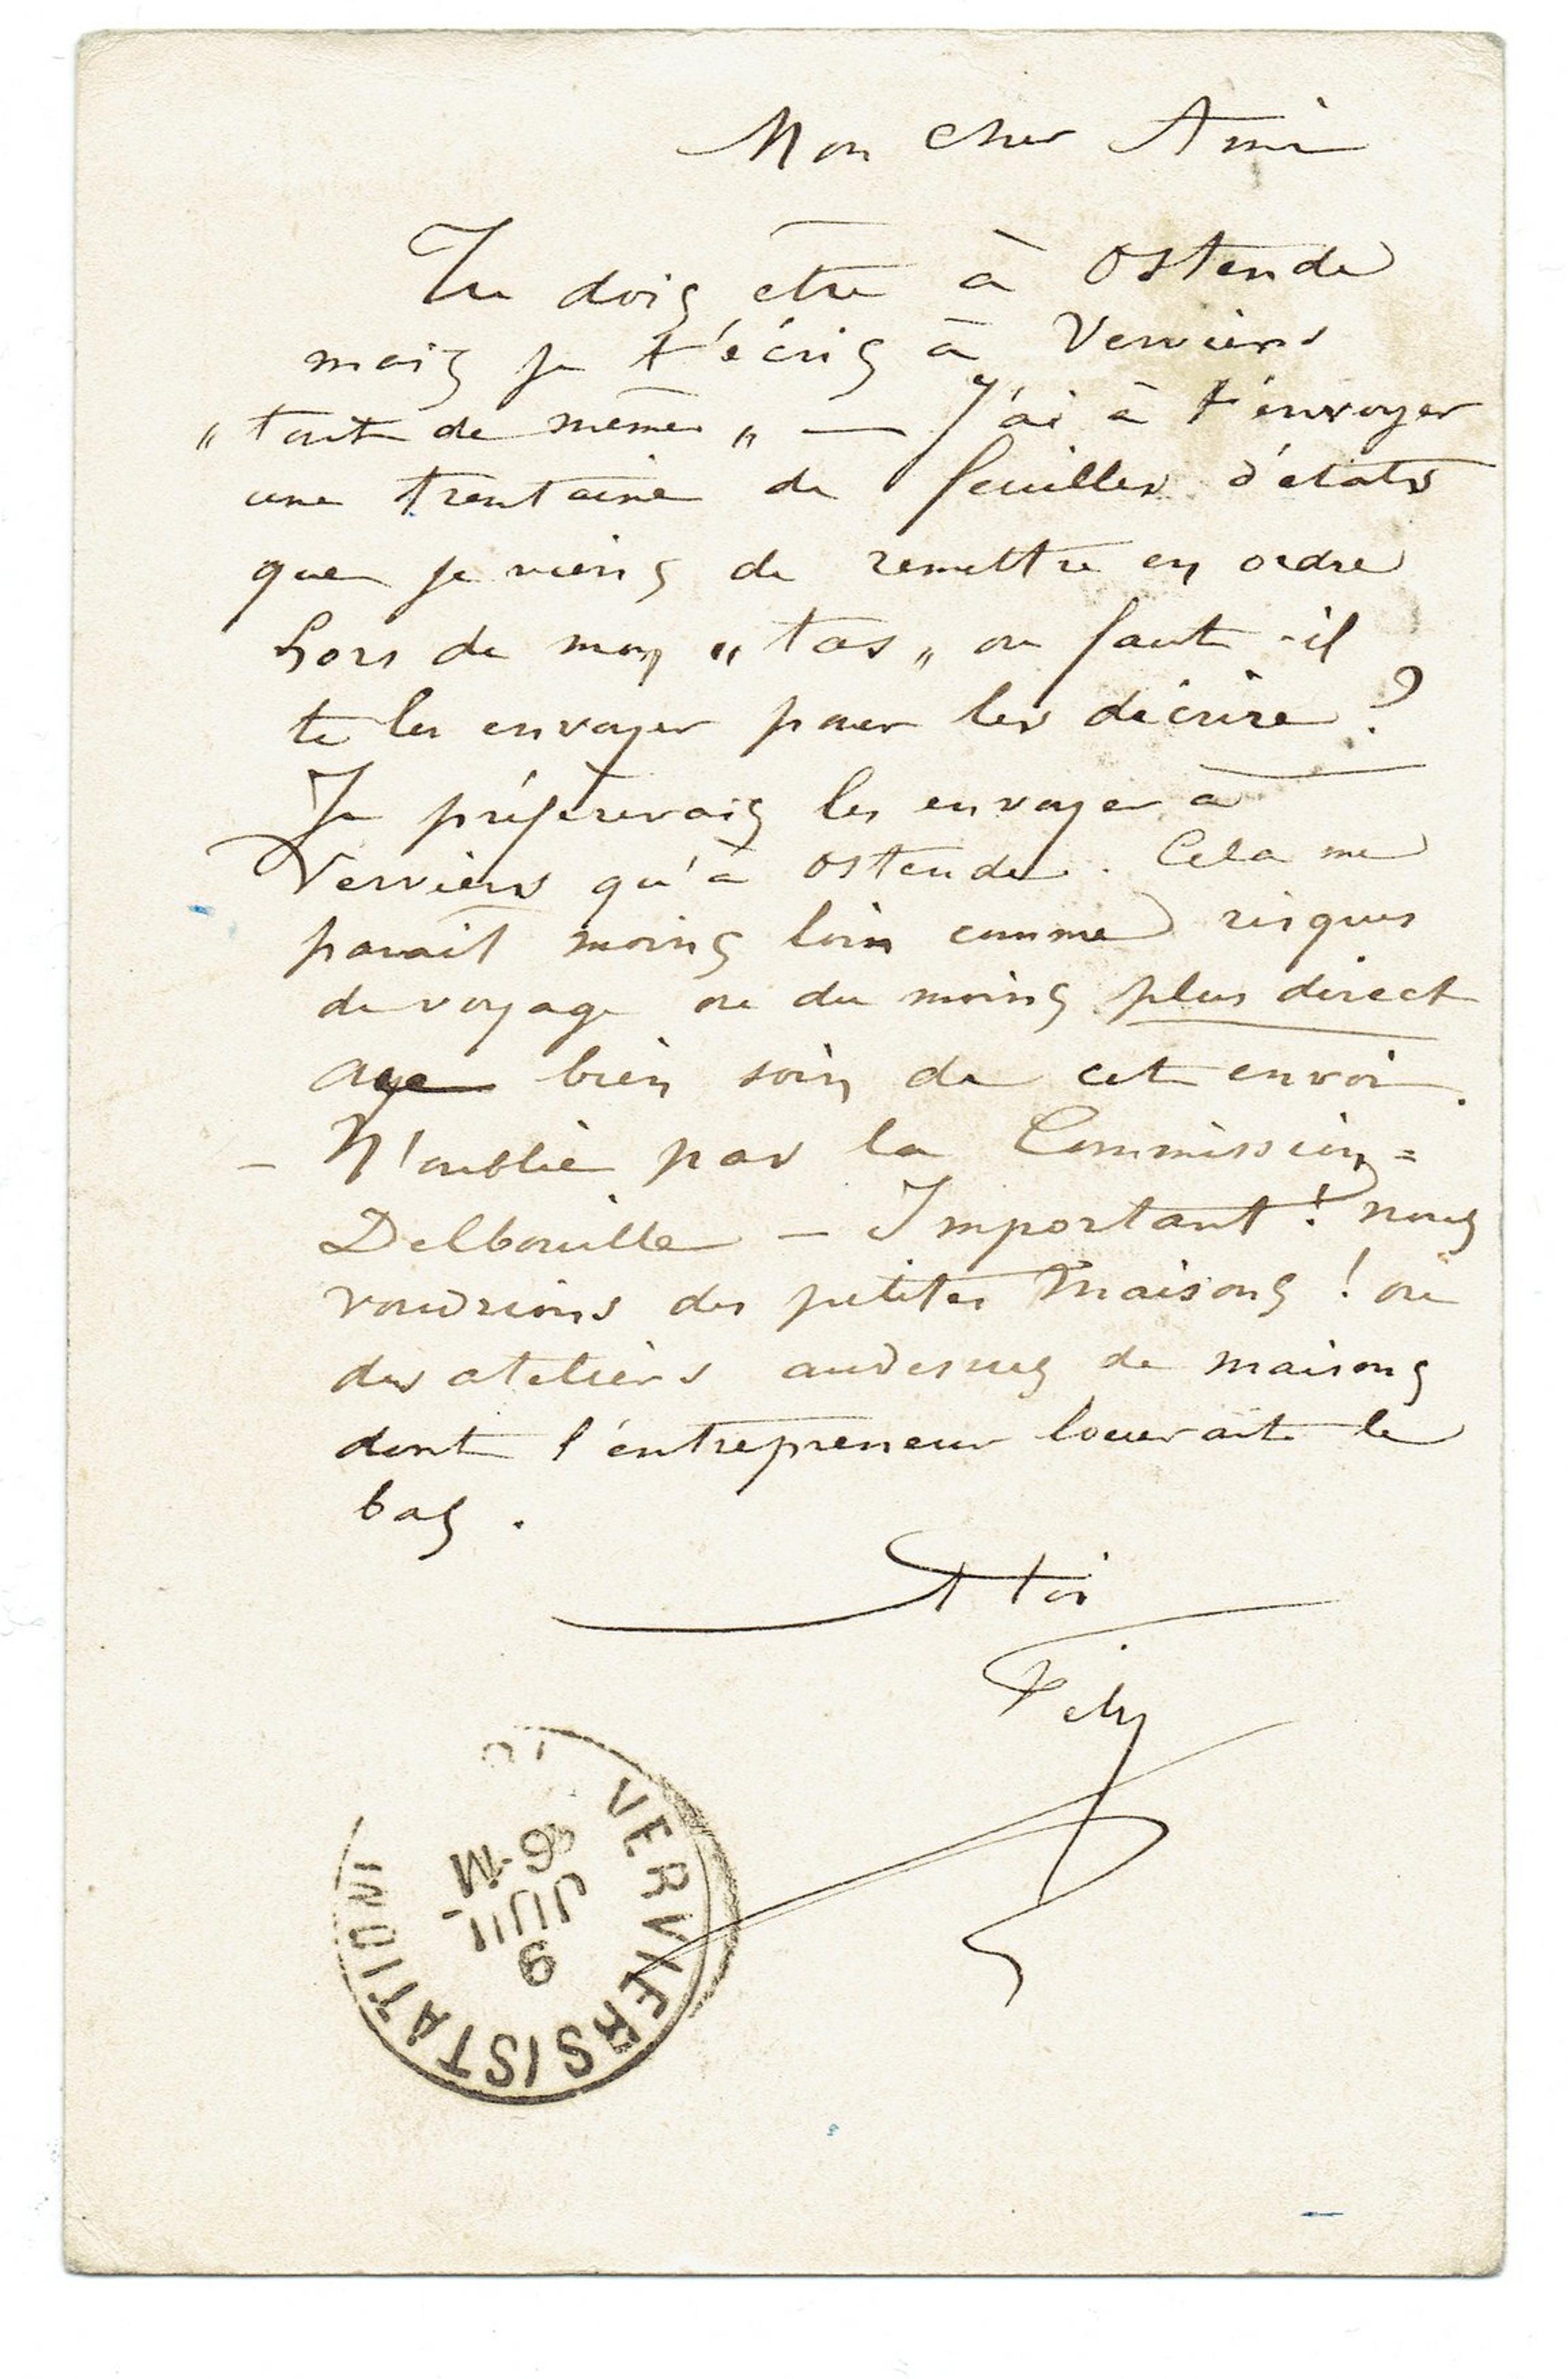 Mon cher Ami
Tu dois être à Ostende
mais je t'écris à Verviers
„ tout de même „ — J'ai à t'envoyer
une trentaine de feuilles d'états
que je viens de remettre en ordre
hors de mon „ tas „ ou faut-il
te les envoyer pour les décrire ?
Je préfererais les envoyer à
Verviers qu'à Ostende. Cela me
parait moins loin comme risques
de voyage ou du moins plus direct
aye bien soin de cet envoi.
— N'oublie pas la Commission =
Delbouille — Important ! nous
voudrions des petites maisons ! ou
des ateliers audessus de maisons
dont l'entrepreneur louerait le
bas.
A toi
Fély
VERVIERS (STATION)
6-M
JUIL
9